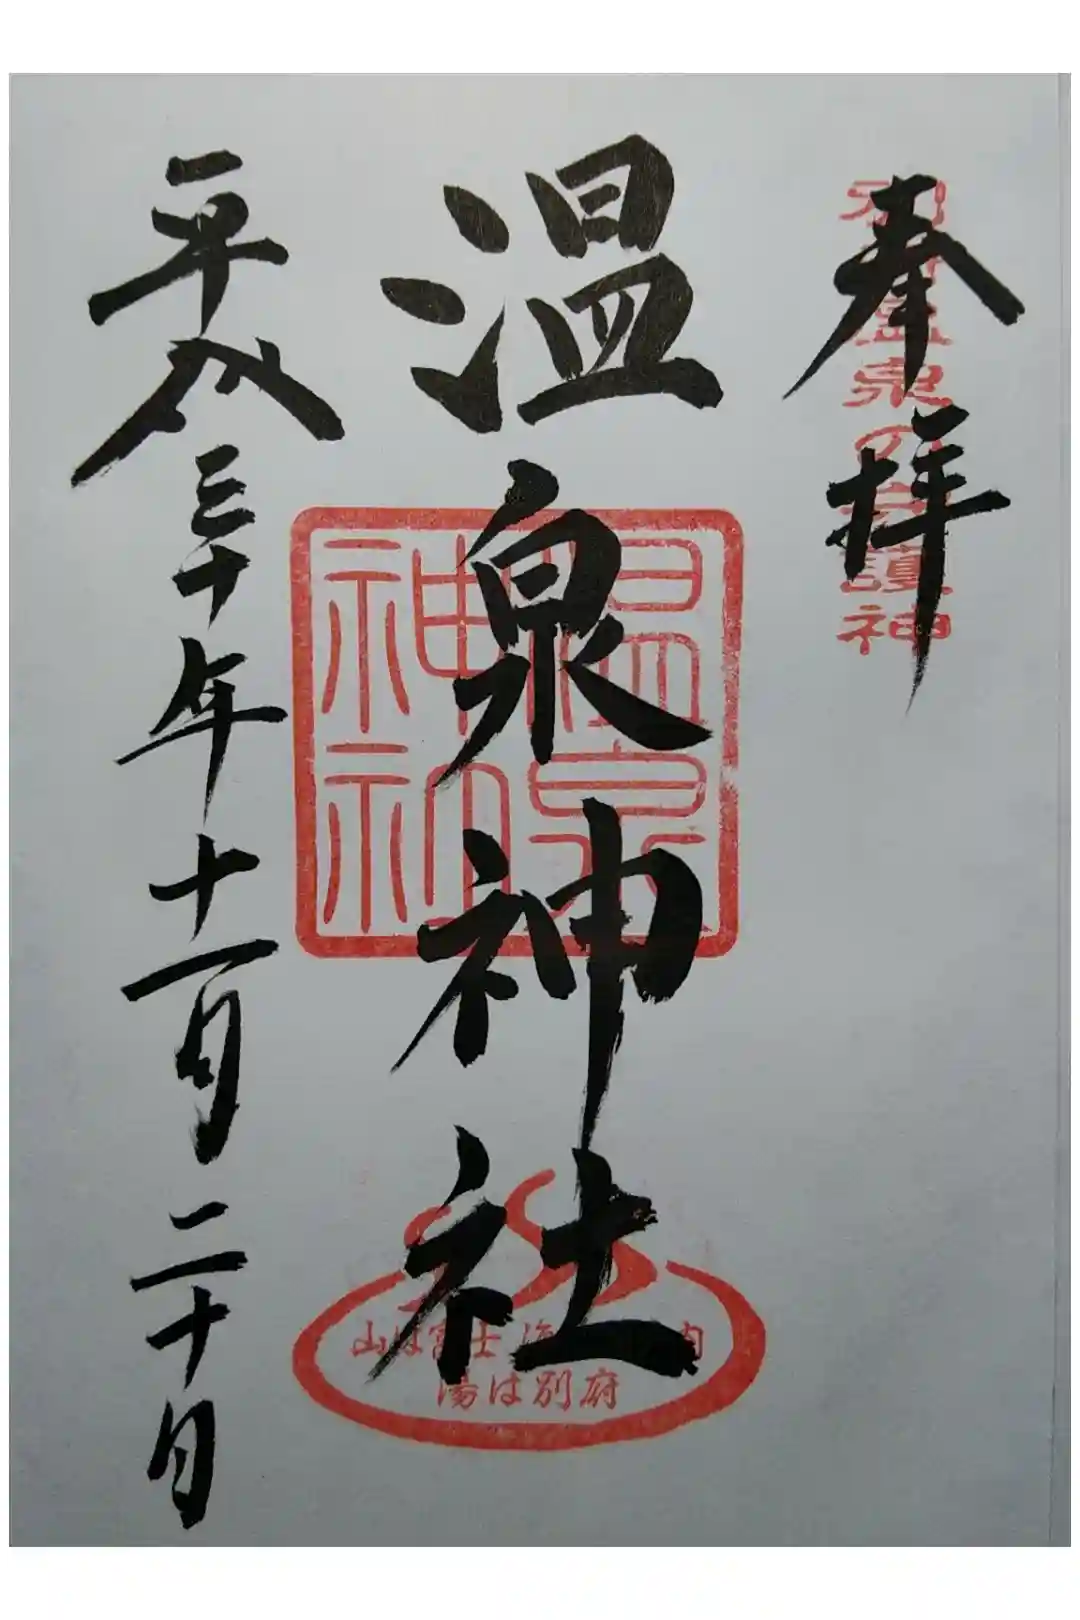 奉拝
別府温泉の守護神
温泉神社
温泉
神社
山は富士 海は 内
湯は別府
平成三十年十一月二十日